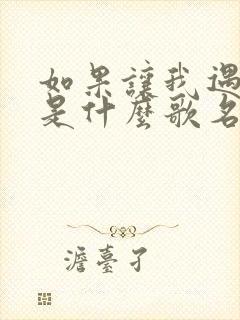 如果讓我遇
是什麼歌名
澹臺子